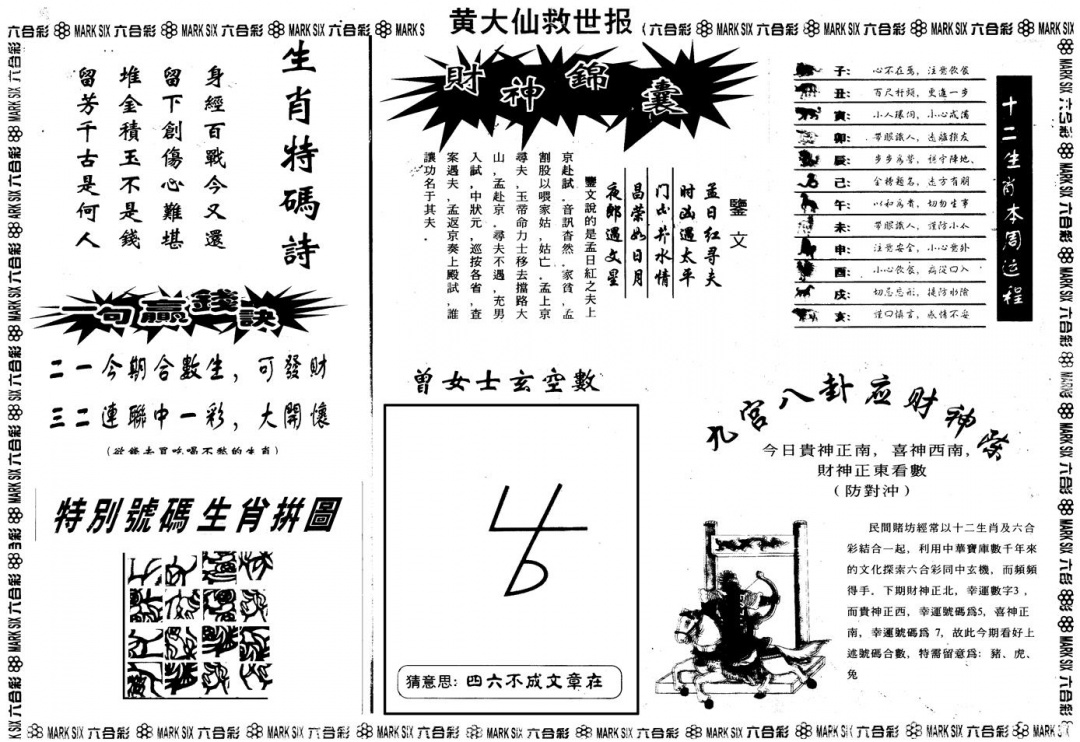 黄大仙救世报
六合彩 MARK SIX 六合彩 MARK SIX 六合彩 MARK SIX 六合彩 MARK S
六合彩 MARK SIX 六合彩 MARK SIX 六合彩 MARK SIX 六合彩 MARK SIX
生肖特碼詩
身經百戰今又還
留下創傷心難堪
堆金積玉不是錢
留芳千古是何人
一句贏錢訣
二一今期合數生，可發財
三二連聯中一彩，大開懷
（欲錢去買吃喝不愁的生肖）
特別號碼生肖拼圖
財神錦囊
鑒文
孟日红寻夫
时凶遇太平
门出井水情
昌荣如日月
夜郎遇文星
鑒文說的是孟日紅之夫上
京赴試，音訊杳然，家貧，孟
割股以喂家姑，姑亡，孟上京
尋夫，玉帝命力士移去擋路大
山，孟赴京，尋夫不遇，充男
入試，中狀元，巡按各省，查
案遇夫，孟返京奏上殿試，誰
讓功名于其夫．
曾女士玄空數
猜意思：四六不成文章在
十二生肖本周运程
子：心不在焉，注意饮食
丑：百尺杆頭，更進一步
寅：小人環伺，小心戒備
卯：带眼識人，遠離損友
辰：步步爲營，穩守陣地、
己：金榜題名，遠方有朋
午：以和爲貴，切勿生事
未：带眼識人，謹防小人
申：注意安全，小心意外
酉：小心飲食，病從口入
戌：切忌忘形，提防水險
亥：謹口慎言，感情不妥
九宮八卦应财神柴
今日貴神正南，喜神西南，
財神正東看數
（防對沖）
民間賭坊經常以十二生肖及六合
彩結合一起，利用中華寶庫數千年來
的文化探索六合彩同中玄機，而頻頻
得手．下期財神正北，幸運數字3，
而貴神正西，幸運號碼爲5，喜神正
南，幸運號碼爲 7，故此今期看好上
述號碼合數，特需留意爲：豬、虎、
兔
MARK SIX 六合彩 MARK SIX 六合彩 MARK SIX 六合彩 MARK SIX 六合彩 MARK SIX 六合彩 MARK SIX 六合彩 MARK SIX 六合彩 MARK SIX 六合彩 MARK SIX 六合彩